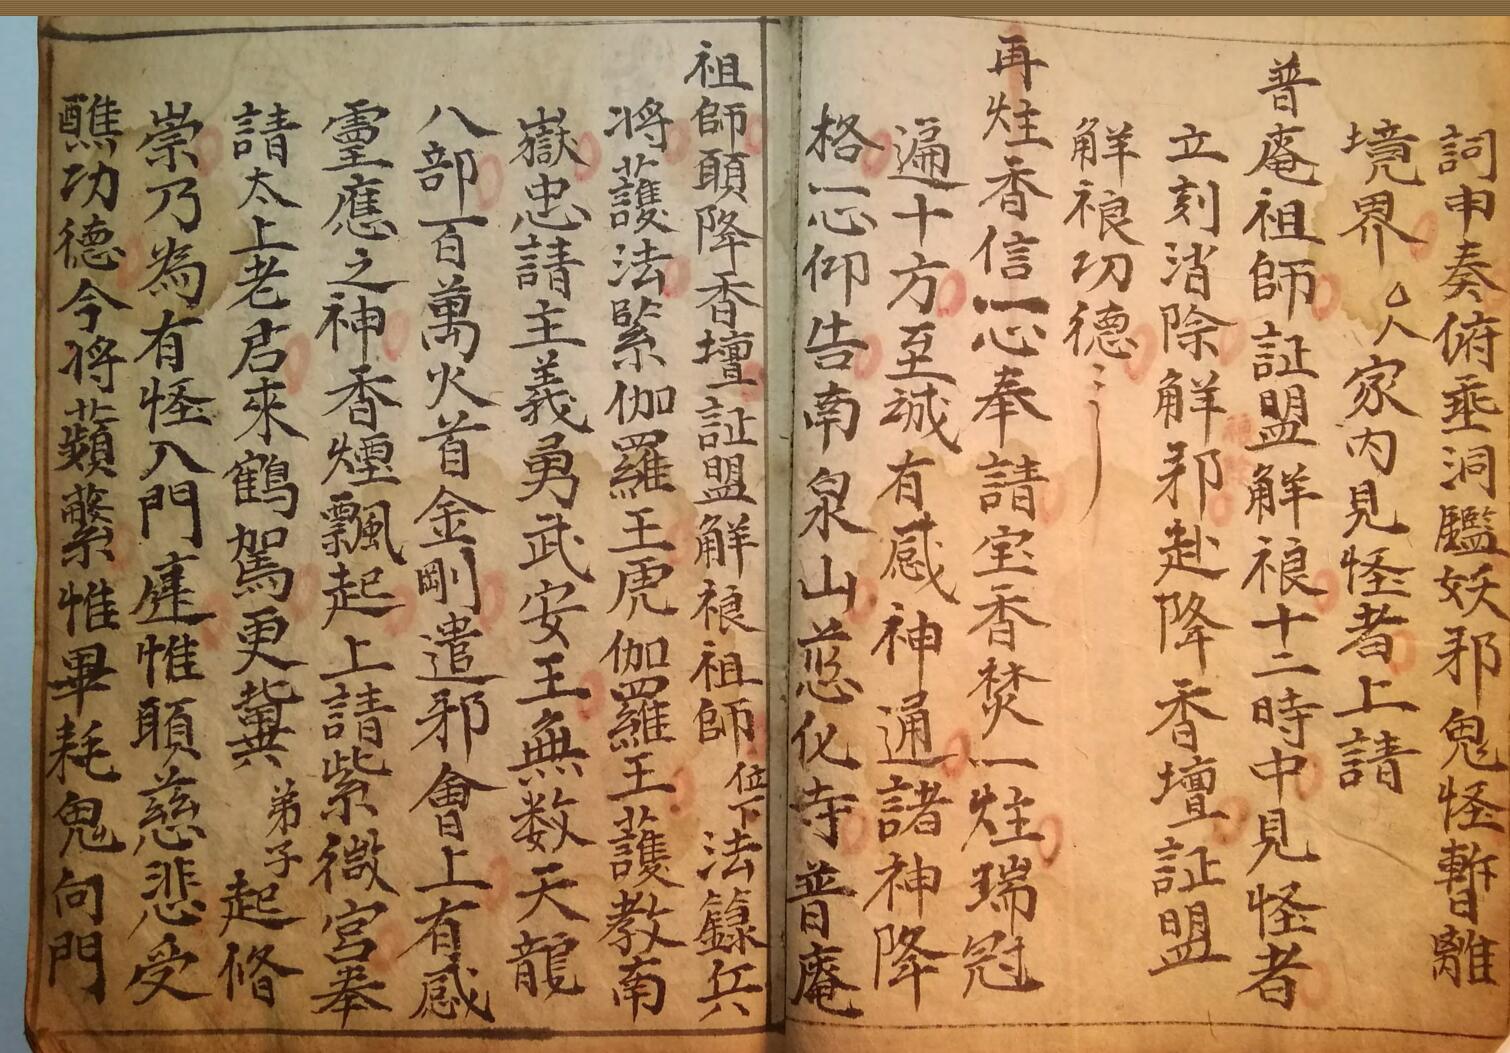 詞申奏俯垂洞鑑妖邪鬼怪暫離
境界 人家内見怪者上請
普庵祖師証盟解禳十二時中見怪者
立刻消除解邪赴降香壇証盟
解禳功德
再炷香信一心奉請宝香焚一炷瑞冠
遍十方至诚有感神通諸神降
格一心仰告南泉山慈化寺普庵
祖師願降香壇証盟解禳祖師位下法籙兵
将護法緊伽羅王虎伽羅王護教南
嶽忠請主義勇武安王無数天龍
八部一百萬火首金剛遣邪會上有感
靈應之神香煙飄起上請紫微宮奉
請太上老君來鶴駕更冀弟子起修
醮功德今将蘋蘩惟畢耗鬼句門
崇乃為有怪入門庭惟願慈悲受